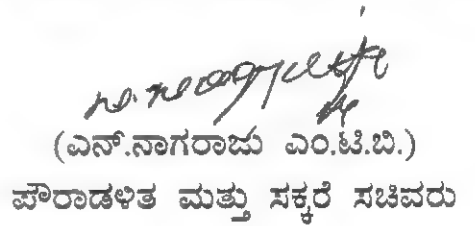 (ಎನ್.ನಾಗರಾಜು ಎಂ.ಟಿ.ಬಿ.)
ಪೌರಾಡಳಿತ ಮತ್ತು ಸಕ್ಕರೆ ಸಚಿವರು